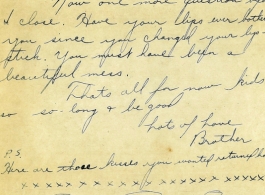 Now one more question before
I close. Have your lips ever bothered
you since you changed your lip-
stick. You must have been a
beautiful mess.
Thats all for now kids
so so-long & be good
lots of love
Brother
P.S.
Here are those kisses you wanted returned
xxxxxxxxxxxxxxxxx